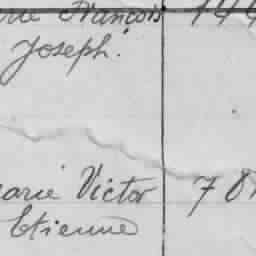 François 144
Joseph.
Marie Victor 7 8
Etienne